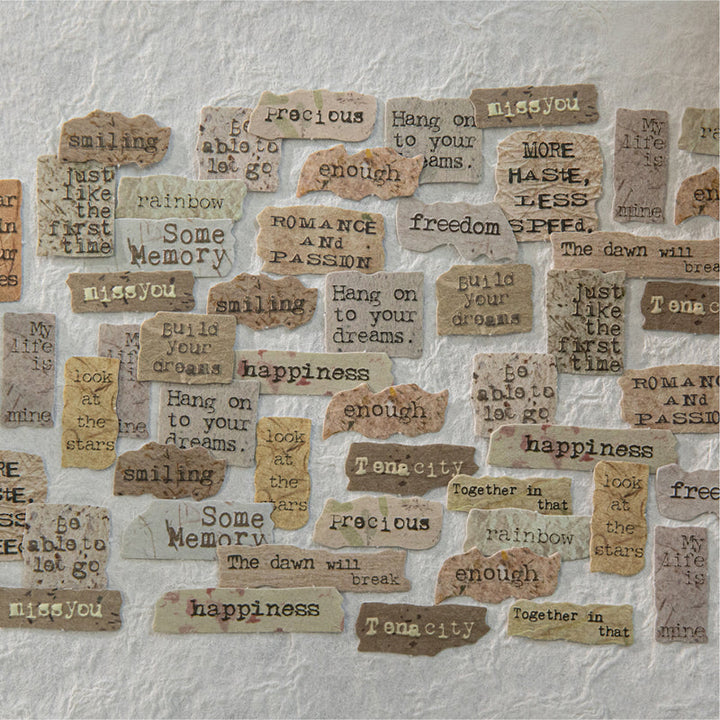 missyou
smiling
Be
able to
let go
Precious
Hang on
to your
eams.
MORE
HASTE,
LESS
SPEED.
My
life
is
mine
Just
like
the
first
time
rainbow
enough
Some
Memory
ROMANCE
ANd
PASSION
freedom
The dawn will
brea
missyou
smiling
Hang on
to your
dreams.
Build
your
dreams
Just
like
the
first
time
Tena
My
life
is
mine
Build
your
dreams
happiness
look
at
the
stars
Hang on
to your
dreams.
enough
Be
able to
let go
ROMANC
ANd
PASSIO
look
at
the
stars
happiness
smiling
Tenacity
Together in
that
look
at
the
stars
free
Be
able to
let go
Some
Memory
Precious
rainbow
My
life
is
mine
The dawn will
break
enough
missyou
happiness
Tenacity
Together in
that